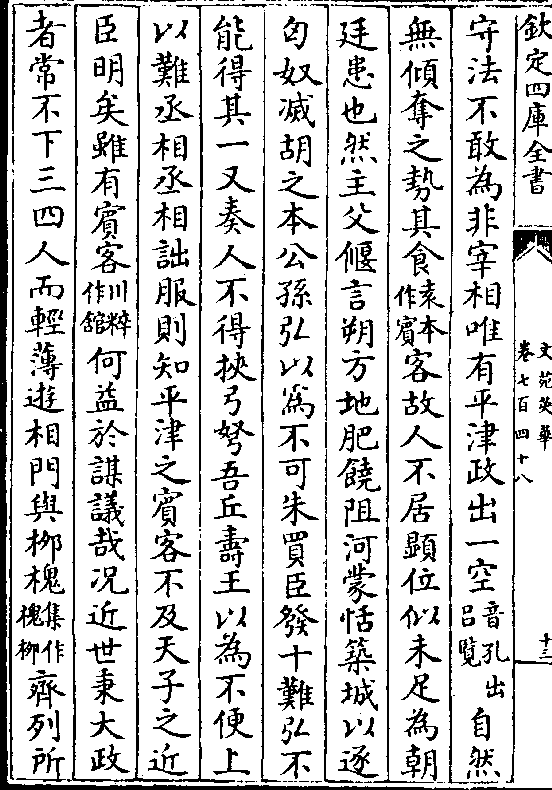 欽定四庫全書
文苑英華
卷七百四十八
十三
守法不敢為非宰相唯有平津政出一空音孔出吕覽自然
無傾奪之勢其食袁本作賓客故人不居顯位似未足為朝
廷患也然主父偃言朔方地肥饒阻河蒙恬築城以逐
匈奴滅胡之本公孫弘以為不可朱買臣發十難弘不
能得其一又奏人不得挾弓弩吾丘壽王以為不便上
以難丞相丞相詘服則知平津之賓客不及天子之近
臣明矣雖有賓客川粹作舘何益於謀議哉况近世秉大政
者常不下三四人而輕薄遊相門與栁槐集作槐栁齊列所